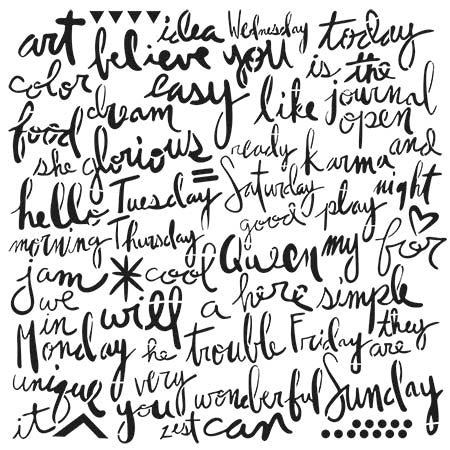 art idea Wednesday today
believe you
color easy is the
dream like journal
food open
she glorious ready karma and
hello Tuesday = Saturday night
good play
morning Thursday Queen my for
jam * cool
we a here simple
in will
Monday he trouble Friday they
are
unique very wonderful Sunday
it you zest can